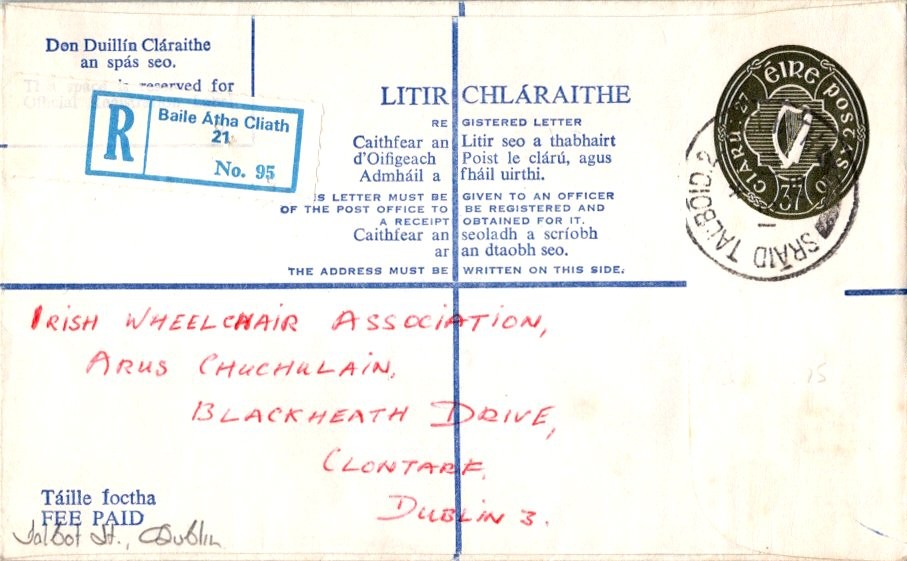 Don Duillín Cláraithe
an spás seo.
is reserved for
R
Baile Atha Cliath
21
No. 95
LITIR CHLÁRAITHE
REGISTERED LETTER
Caithfear an Litir seo a thabhairt
d'Oifigeach Poist le clárú, agus
Admháil a fháil uirthi.
S LETTER MUST BE GIVEN TO AN OFFICER
OF THE POST OFFICE TO BE REGISTERED AND
A RECEIPT OBTAINED FOR IT.
Caithfear an seoladh a scríobh
ar an dtaobh seo.
THE ADDRESS MUST BE WRITTEN ON THIS SIDE.
ÉIRE POSTAS
CLÁRÚ
37
SRÁID TALBÓID
IRISH WHEELCHAIR ASSOCIATION,
ARUS CHUCHULAIN,
BLACKHEATH DRIVE,
CLONTARF,
DUBLIN 3.
15
Táille íoctha
FEE PAID
Talbot St., Dublin